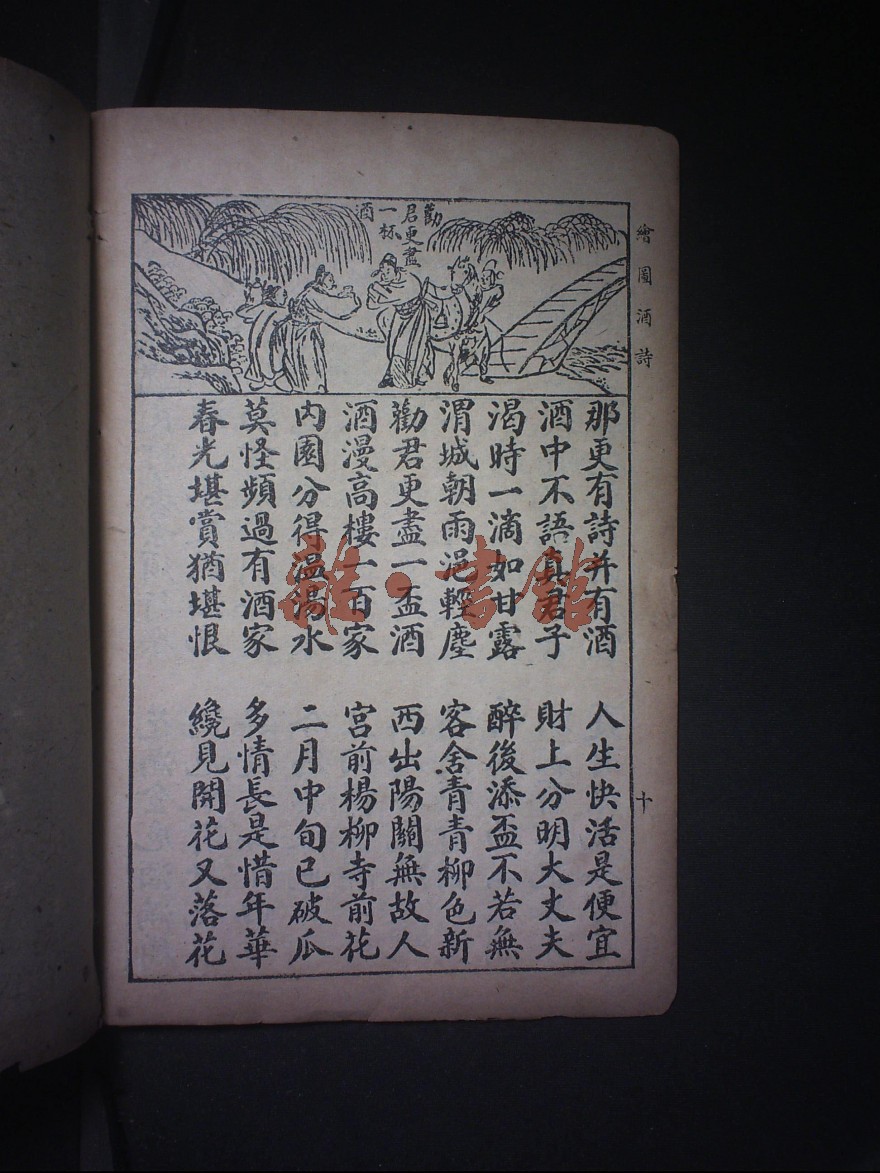 繪圖酒詩
十
勸
君更盡
一杯
酒
那更有詩并有酒 人生快活是便宜
酒中不語真君子 財上分明大丈夫
渴時一滴如甘露 醉後添盃不若無
渭城朝雨浥輕塵 客舍青青柳色新
勸君更盡一盃酒 西出陽關無故人
酒漫高樓一百家 宮前楊柳寺前花
內園分得温湯水 二月中旬已破瓜
莫怪頻過有酒家 多情長是惜年華
春光堪賞猶堪恨 纔見開花又落花
雜·書館